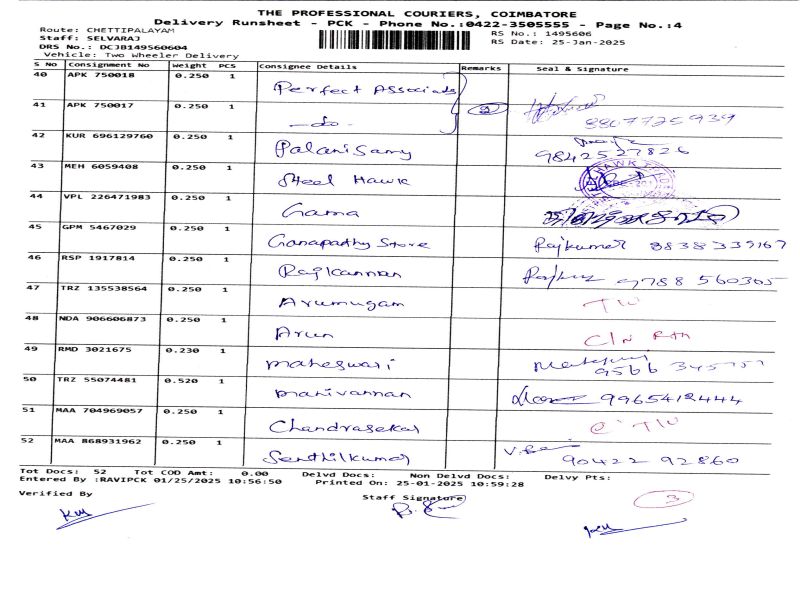 THE PROFESSIONAL COURIERS, COIMBATORE
Delivery Runsheet - PCK - Phone No.:0422-3505555 - Page No.:4
Route: CHETTIPALAYAM
Staff: SELVARAJ RS No.: 1495606
DRS No.: DCJB149560604 RS Date: 25-Jan-2025
Vehicle: Two Wheeler Delivery
S No Consignment No Weight PCS Consignee Details Remarks Seal & Signature
40 APK 750018 0.250 1 Perfect Associats
41 APK 750017 0.250 1 -do- 2 8807725939
42 KUR 696129760 0.250 1 Palanisamy 9842527826
43 MEH 6059408 0.250 1 Steel Hawk
44 VPL 226471983 0.250 1 Gama
45 GPM 5467029 0.250 1 Ganapathy Store Rajkumar 8838339167
46 RSP 1917814 0.250 1 Rajkannan 9788560305
47 TRZ 135538564 0.250 1 Arumugam
48 NDA 906606873 0.250 1 Arun C/N Rtn
49 RMD 3021675 0.230 1 maheswari 9566
50 TRZ 55074481 0.520 1 manivannan 9965412444
51 MAA 704969057 0.250 1 Chandrasekar
52 MAA 868931962 0.250 1 Senthilkumar 90422 92860
Tot Docs: 52 Tot COD Amt: 0.00 Delvd Docs: Non Delvd Docs: Delvy Pts:
Entered By :RAVIPCK 01/25/2025 10:56:50 Printed On: 25-01-2025 10:59:28
Verified By Staff Signature 3